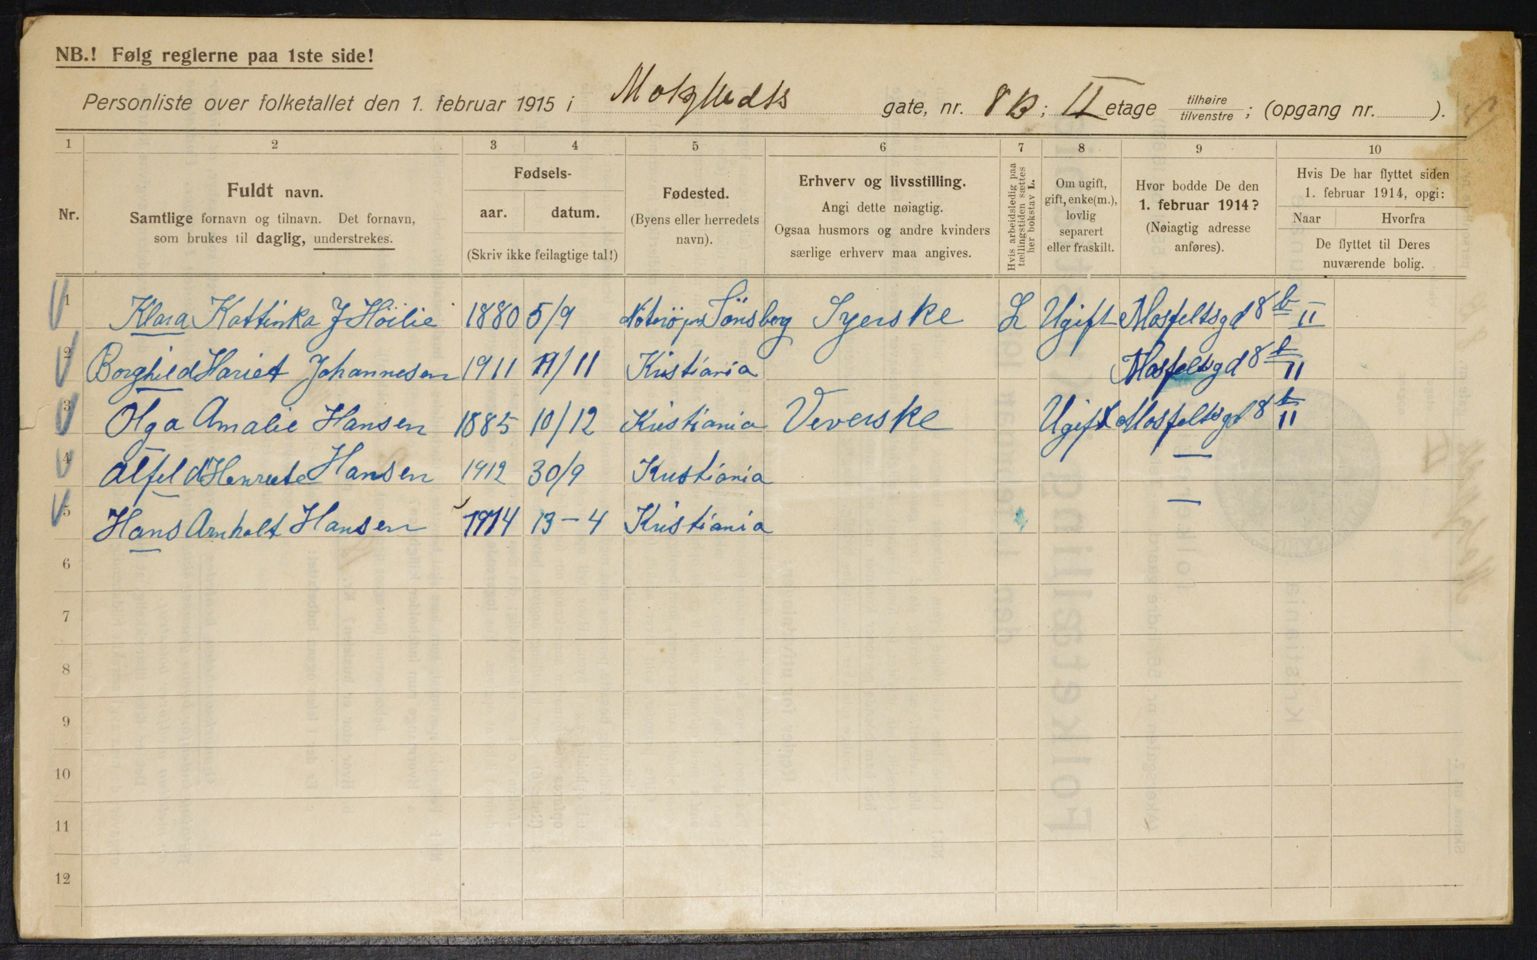 NB.! Følg reglerne paa 1ste side!
Personliste over folketallet den 1. februar 1915 i gate, nr. 8B; II etage tilhøire tilvenstre ; (opgang nr. ).
1 2 3 4 5 6 7 8 9 10
Nr.
Fuldt navn.
Samtlige fornavn og tilnavn. Det fornavn,
som brukes til daglig, understrekes.
Fødsels-
aar. datum.
(Skriv ikke feilagtige tal!)
Fødested.
(Byens eller herredets
navn).
Erhverv og livsstilling.
Angi dette nøiagtig.
Ogsaa husmors og andre kvinders
særlige erhverv maa angives.
Hvis arbeidsledig paa
tællingstiden sættes
her bokstav L.
Om ugift,
gift, enke(m.),
lovlig
separert
eller fraskilt.
Hvor bodde De den
1. februar 1914?
(Nøiagtig adresse
anføres).
Hvis De har flyttet siden
1. februar 1914, opgi:
Naar Hvorfra
De flyttet til Deres
nuværende bolig.
1 Klara Kattinka J Höilie 1880 5/9 Tönsberg Syerske L Ugift Mosfeltsgd 8 b II
2 Borghild Hariet Johannesen 1911 11/11 Kristiania Mosfeltsgd 8 b II
3 Olga Amalie Hansen 1885 10/12 Kristiania Veverske Ugift Mosfeltsgd 8 b II
4 Alfeld Henriete Hansen 1912 30/9 Kristiania —
5 Hans Arnholt Hansen 1914 13-4 Kristiania —
6
7
8
9
10
11
12